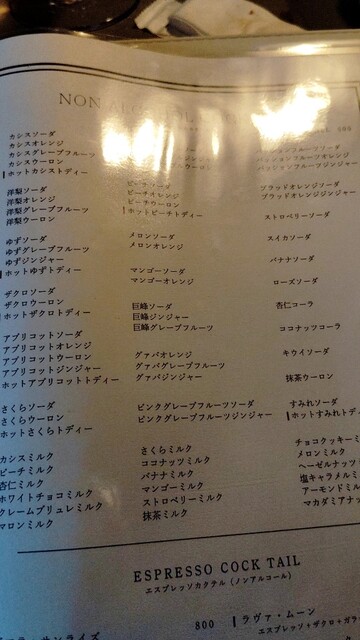 NON
600
カシスソーダ
カシスオレンジ
カシスグレープフルーツ
カシスウーロン
ホットカシストディー
洋梨ソーダ
洋梨オレンジ
洋梨グレープフルーツ
洋梨ウーロン
ゆずソーダ
ゆずグレープフルーツ
ゆずジンジャー
ホットゆずトディー
ザクロソーダ
ザクロウーロン
ホットザクロトディー
アプリコットソーダ
アプリコットオレンジ
アプリコットウーロン
アプリコットジンジャー
ホットアプリコットトディー
さくらソーダ
さくらウーロン
ホットさくらトディー
カシスミルク
ピーチミルク
杏仁ミルク
ホワイトチョコミルク
クレームブリュレミルク
マロンミルク
ピーチソーダ
ピーチオレンジ
ピーチウーロン
ホットピーチトディー
メロンソーダ
メロンオレンジ
マンゴーソーダ
マンゴーオレンジ
巨峰ソーダ
巨峰ジンジャー
巨峰グレープフルーツ
グァバオレンジ
グァバグレープフルーツ
グァバジンジャー
ピンクグレープフルーツソーダ
ピンクグレープフルーツジンジャー
さくらミルク
ココナッツミルク
バナナミルク
マンゴーミルク
ストロベリーミルク
抹茶ミルク
パッションフルーツソーダ
パッションフルーツオレンジ
パッションフルーツジンジャー
ブラッドオレンジソーダ
ブラッドオレンジジンジャー
ストロベリーソーダ
スイカソーダ
バナナソーダ
ローズソーダ
杏仁コーラ
ココナッツコーラ
キウイソーダ
抹茶ウーロン
すみれソーダ
ホットすみれトディ
チョコクッキーミ
メロンミルク
ヘーゼルナッツ
塩キャラメルミ
アーモンドミル
マカダミアナッ
ESPRESSO COCK TAIL
エスプレッソカクテル (ノンアルコール)
800
ラヴァ・ムーン
エスプレッソ+ザクロ+ガラ